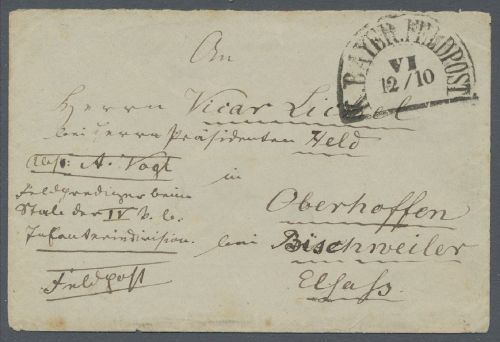 An
K. BAYER. FELDPOST
VI
12/10
Herrn Vicar Lickel
bei Herrn Präsidenten Held
Abs: A. Vogt
in
Feldprediger beim
Oberhoffen
Stabe der IV b.
Infanteriedivision.
bei Bischweiler
Feldpost
Elsass.